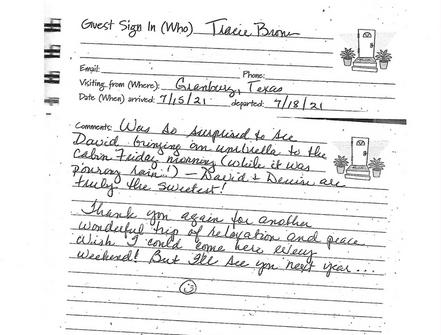 Guest Sign In (Who) Tracie Brown
Email: Phone:
Visiting from (Where): Granbury, Texas
Date (When) arrived: 7/15/21 departed: 7/18/21
Comments: Was so surprised to see
David bringing an umbrella to the
cabin Friday morning (while it was
pouring rain!) – David & Denise are
truly the sweetest!
Thank you again for another
wonderful trip of relaxation and peace
Wish I could come here every
weekend! But I'll see you next year ...